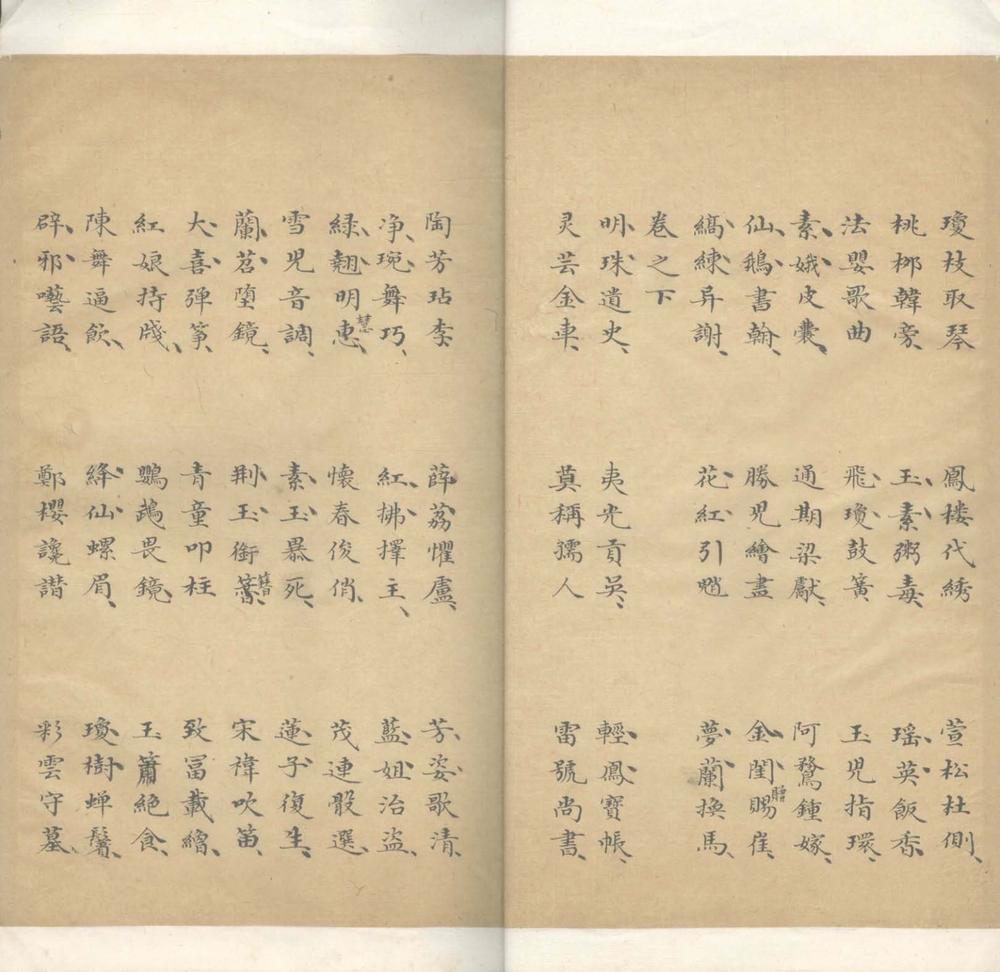 瓊枝取琴 鳳楼代綉 萱松杜側
桃柳韓旁 玉素粥毒 瑶英飯香
法嬰歌曲 飛瓊鼓簧 玉児指環
素娥皮囊 通期梁獻 阿鶩鍾嫁
仙鵝書翰 勝児繪畫 金閨賜贈崔
縞練异謝 花紅引魈 夢蘭換馬
卷之下
明珠遺史 夷光貢吳 輕鳳寶帳
灵芸金車 莫稱孺人 雷號尚書
陶芳玷李 薛荔懼盧 芳姿歌清
净琬舞巧 紅拂擇主 藍姐治盜
緑翹明恵慧 懷春俊俏 茂連骰選
雪児音調 素玉暴死 蓮子復生
蘭苕墮鏡 荆玉銜簪 宋褘吹笛
大喜彈筝 青童叩柱 致冨載繒
紅娘持牋 鸚鵡畏鏡 玉簫絕食
陳舞逼飲 絳仙螺眉 瓊樹蝉鬢
辟邪囈語 鄭櫻讒譖 彩雲守墓